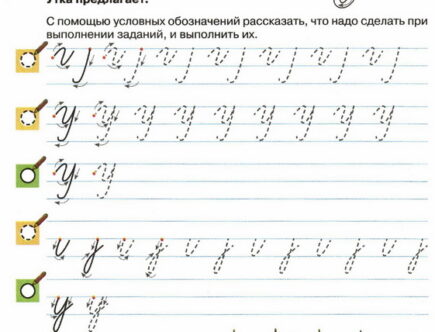 Утка предлагает:
С помощью условных обозначений рассказать, что надо сделать при
выполнении заданий, и выполнить их.
У У У У У У У У
У У
у у